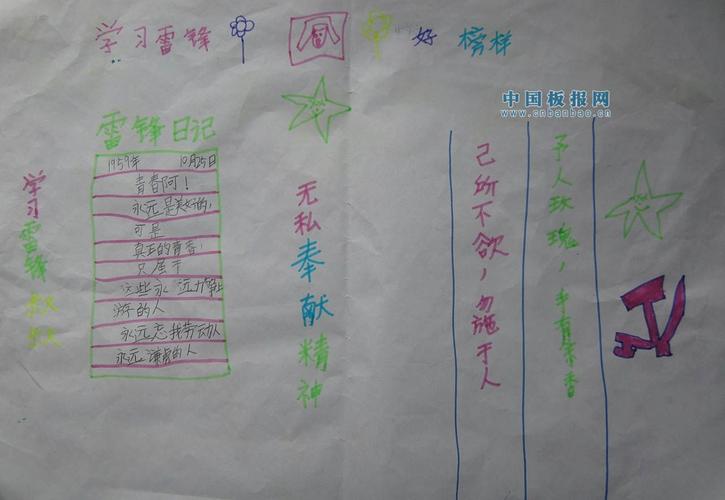 学习雷锋 好 榜样
中国板报网
www.cnbanbao.cn
学习雷锋叔叔
雷锋日记
1959年 10月25日
青春啊!
永远是美好的,
可是
真正的青春,
只属于
这些永远力争上
游的人
永远忘我劳动人
永远谦虚的人
无私奉献精神
己所不欲,勿施于人
予人玫瑰,手有余香